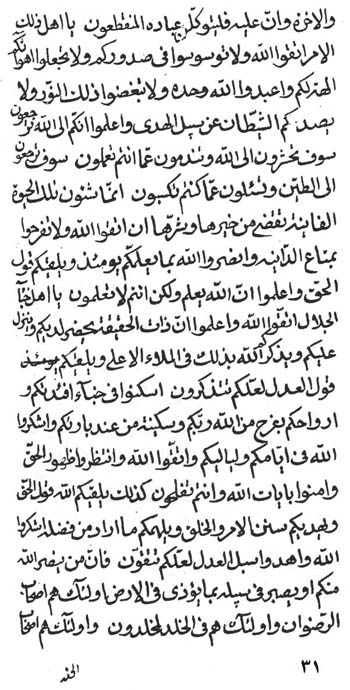 والاخرة وان عليه فليتوكلن عباده المنقطعون يا اهل ذلك
الامر اتقوا الله ولا توسوسوا فى صدوركم ولا تجعلوا اهوائكم
الهتكم واعبدوا الله وحده ولا تبغضوا ذلك النور ولا
يصدنكم الشيطان عن سبل الهدى واعلموا انكم الى الله ترجعون
سوف تحزنون الى الله وتندمون عما انتم تعملون سوف ترجعون
الى الطين وتسئلون عما كنتم تكسبون انما شئون تلك الحيوة
الفانية تقضى من خيرها وشرها ان اتقوا الله ولا تفرحوا
بمتاع الدانية وانصروا الله بما يعلمكم يومئذ ويلقيكم قول
الحق واعلموا ان الله يعلم ولكن انتم لا تعلمون يا اهل
الجلال اتقوا الله واعلموا ان ذات الحقيقة يحضر لديكم وينزل
عليكم ويذكر الله بذلك فى الملاء الاعلى ويلقيكم يومئذ
قول العدل لعلكم تتذكرون اسكنوا فى افئدتكم و
ارواحكم بفرح من الله ربكم وسكينة من عند بارئكم واشكروا
الله فى ايامكم ولياليكم واتقوا الله وانتظروا ظهور الحق
وامنوا بايات الله وانتم تفلحون كذلك يلقيكم الله قول الحق
ويهديكم سنن الامر والخلق ويلهمكم ما اراد من فضله اشكروا
الله واهدوا سبل العدل لعلكم تتقون فان من ينصر الله
منكم او يصبر فى سبيله بما يؤذى فى الارض اولئك هم اصحاب
الرضوان واولئك هم فى الخلد لمخلدون واولئك هم اصحاب
٣١
الجنه